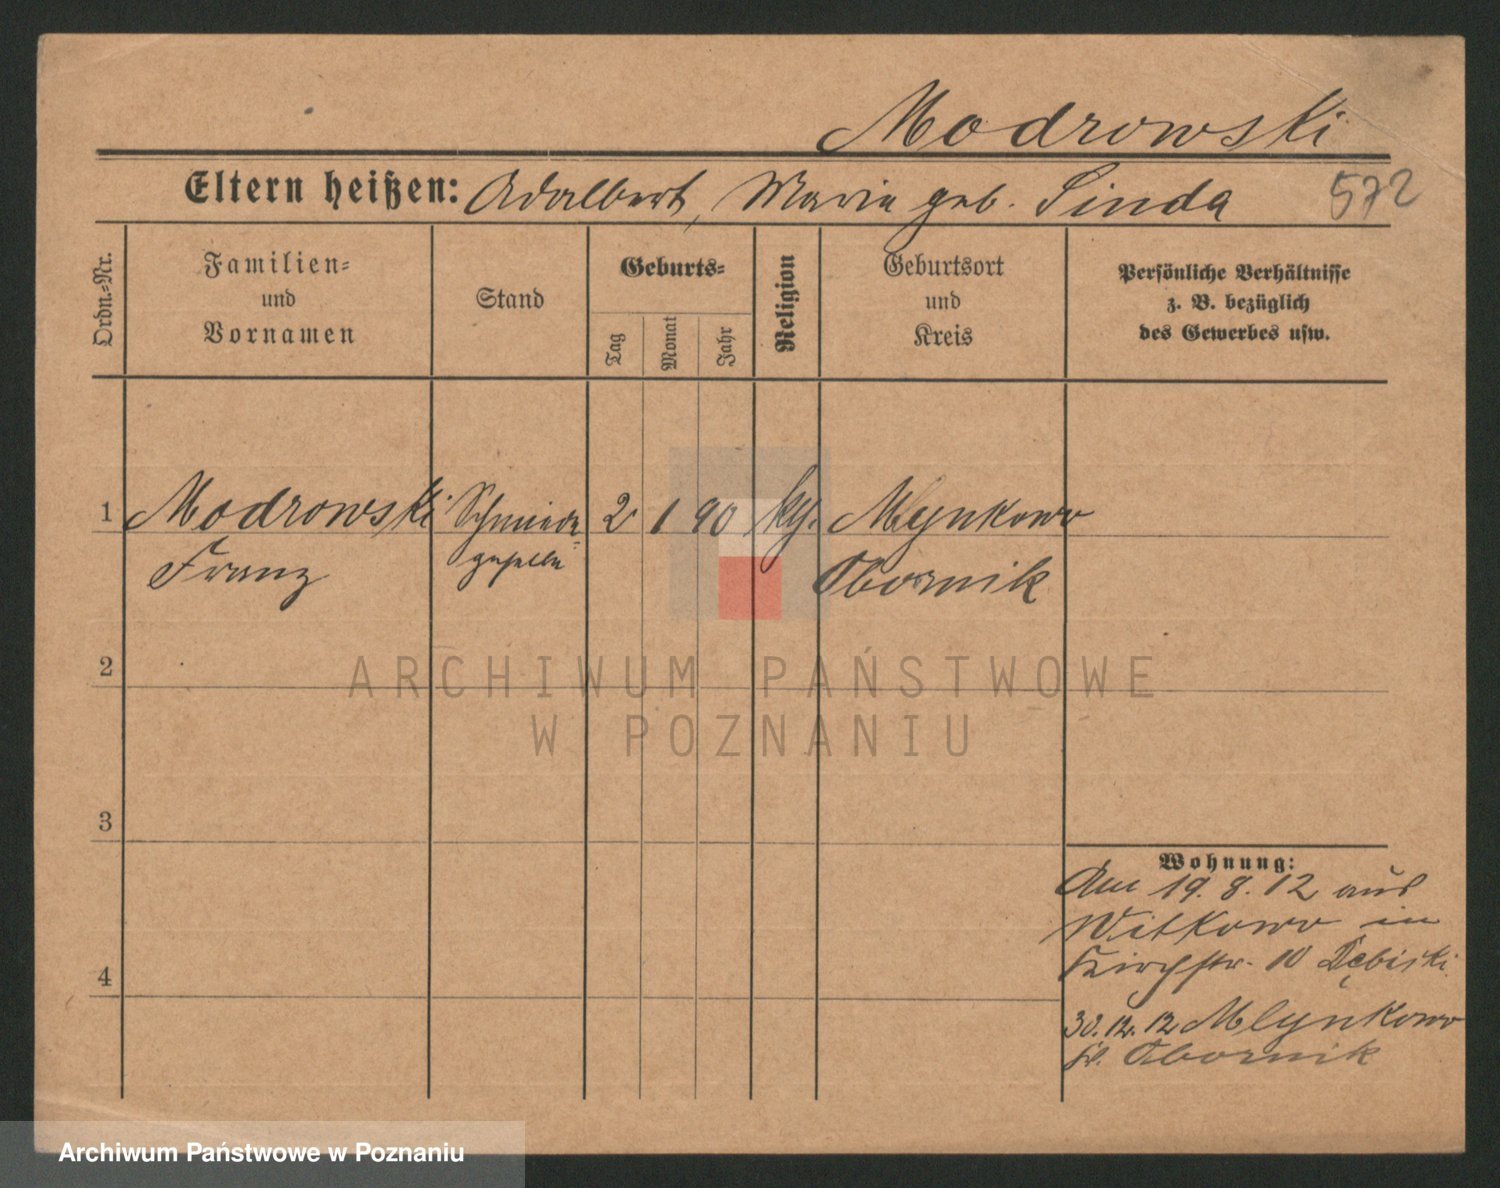 Modrowski
Eltern heißen: Adalbert, Maria geb. Sinda 572
Ordn.-Nr.
Familien-
und
Vornamen
Stand
Geburts-
Tag
Monat
Jahr
Religion
Geburtsort
und
Kreis
Persönliche Verhältnisse
z. B. bezüglich
des Gewerbes usw.
1 Modrowski Schmiede- 2 1 90 kth. Mlynkowo
Franz geselle Obornik
2
ARCHIWUM PAŃSTWOWE
W POZNANIU
3
Wohnung:
Am 19. 8. 12 aus
Witkowo in
Kirchstr. 10 Dębiski
4
30. 12. 12 Mlynkowo
Kr. Obornik
Archiwum Państwowe w Poznaniu